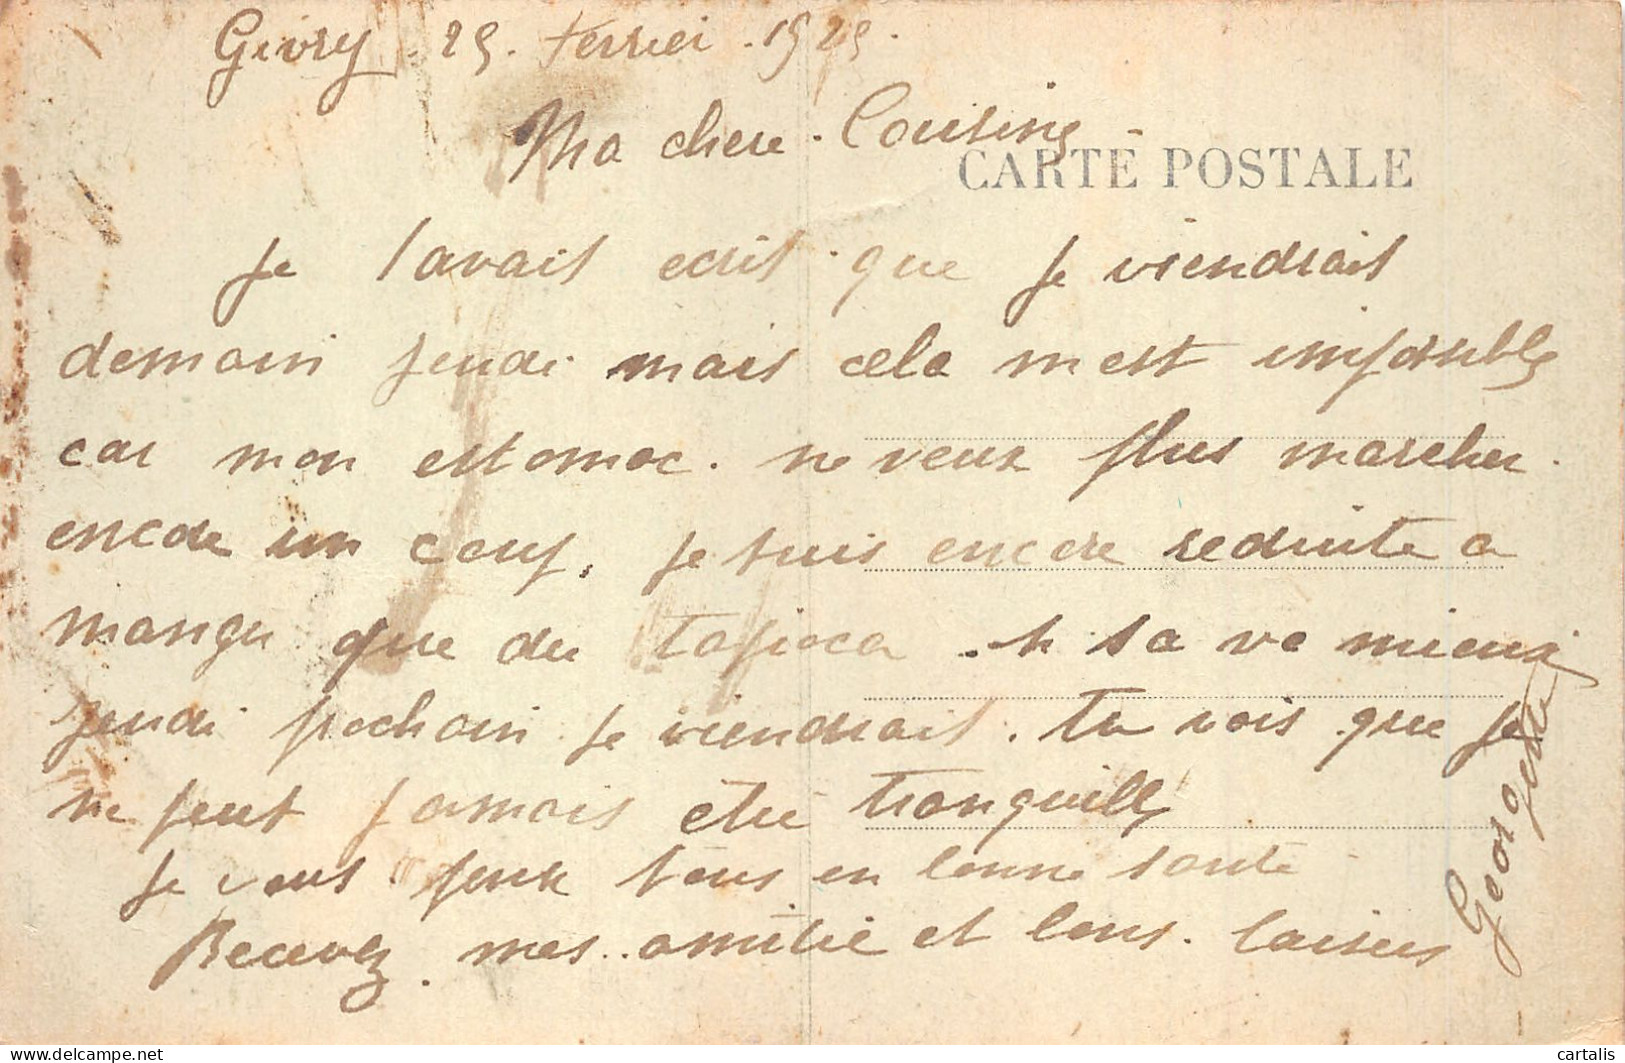 Givry 25. Fevrier. 1925.
Ma chere. Cousine
CARTE POSTALE
Je tavais ecrit que je viendrais
demain jeudi mais cela mest impossible
car mon estomac. ne veux plus marcher.
encore un coup. je suis encore reduite a
manger que du tapioca. si sa va mieux
jeudi prochain je viendrait. tu vois que je
ne peut jamais etre tranquille
je vous tous en bonne sante
Recevez. mes. amitie et bons. baisers
Georgette
cartalis
delcampe.net